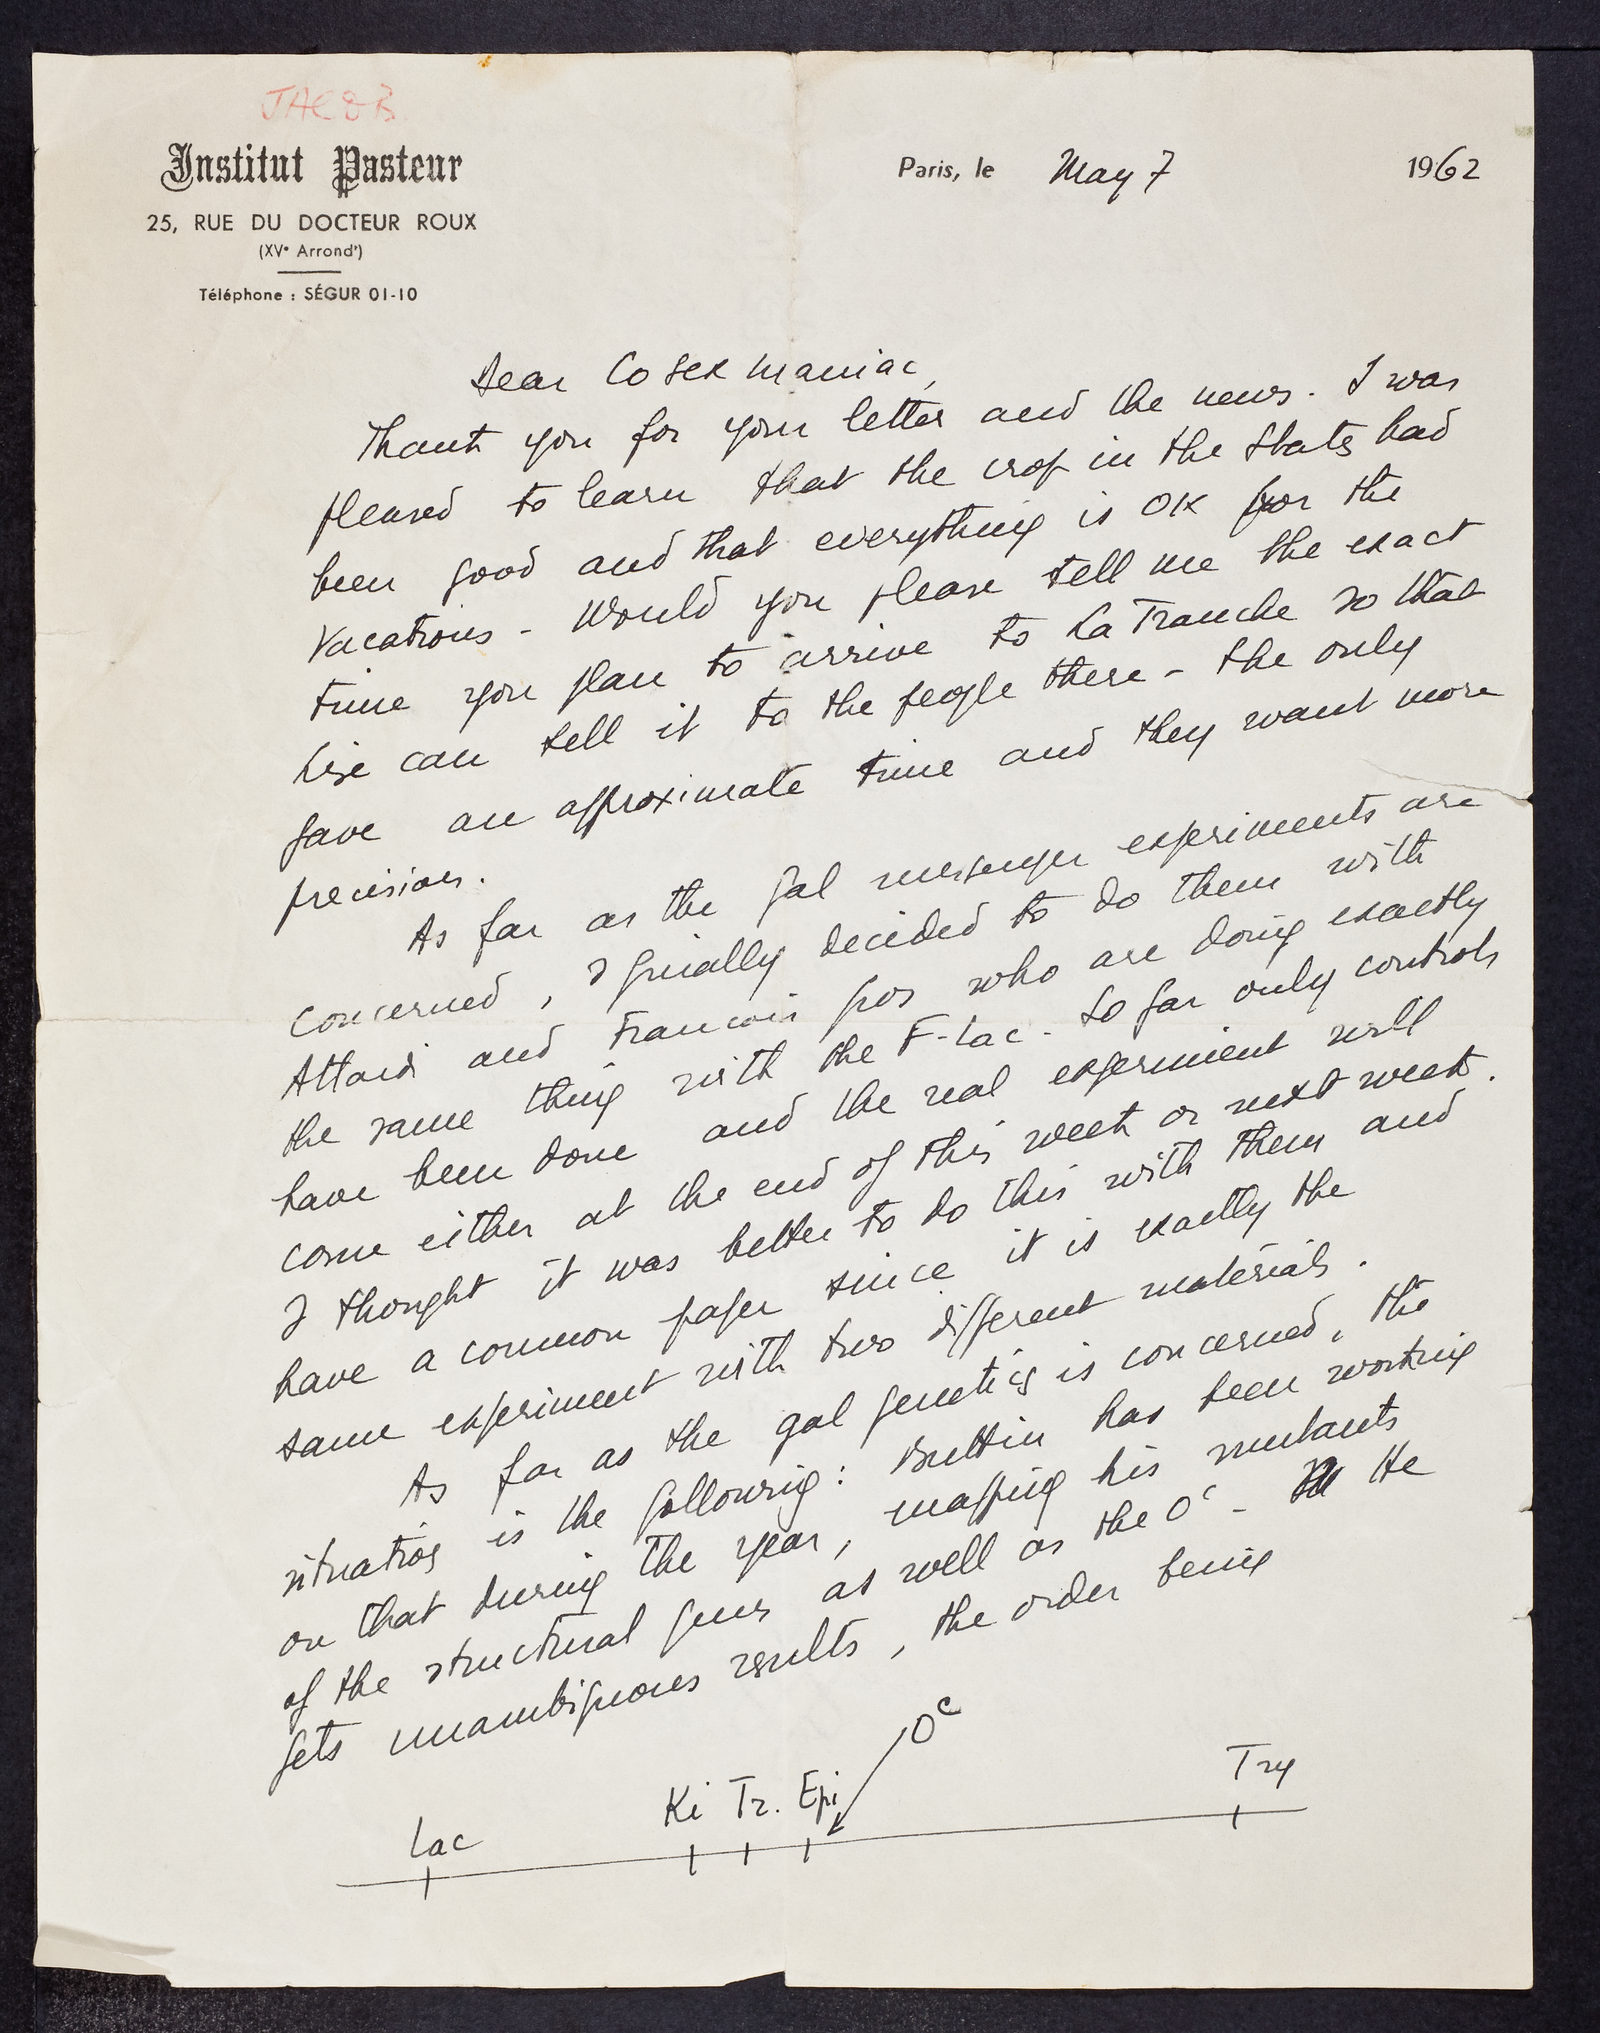 JACOB
Institut Pasteur
25, RUE DU DOCTEUR ROUX
(XVe Arrondt)
Téléphone : SÉGUR 01-10
Paris, le May 7 1962
Dear Co sex maniac,
Thank you for your letter and the news. I was
pleased to learn that the crop in the States had
been good and that everything is OK for the
vacations - Would you please tell me the exact
time you plan to arrive to La Tranche so that
Lise can tell it to the people there - She only
gave an approximate time and they want more
precision.
As far as the gal messenger experiments are
concerned, I finally decided to do them with
Attardi and Francois Gros who are doing exactly
the same thing with the F-Lac - So far only controls
have been done and the real experiment will
come either at the end of this week or next week.
I thought it was better to do this with them and
have a common paper since it is exactly the
same experiment with two different materials.
As far as the gal genetics is concerned, the
situation is the following: Buttin has been working
on that during the year, mapping his mutants
of the structural genes as well as the Oc - He
gets unambiguous results, the order being
Oc
Lac Ki Tr. Epi Try